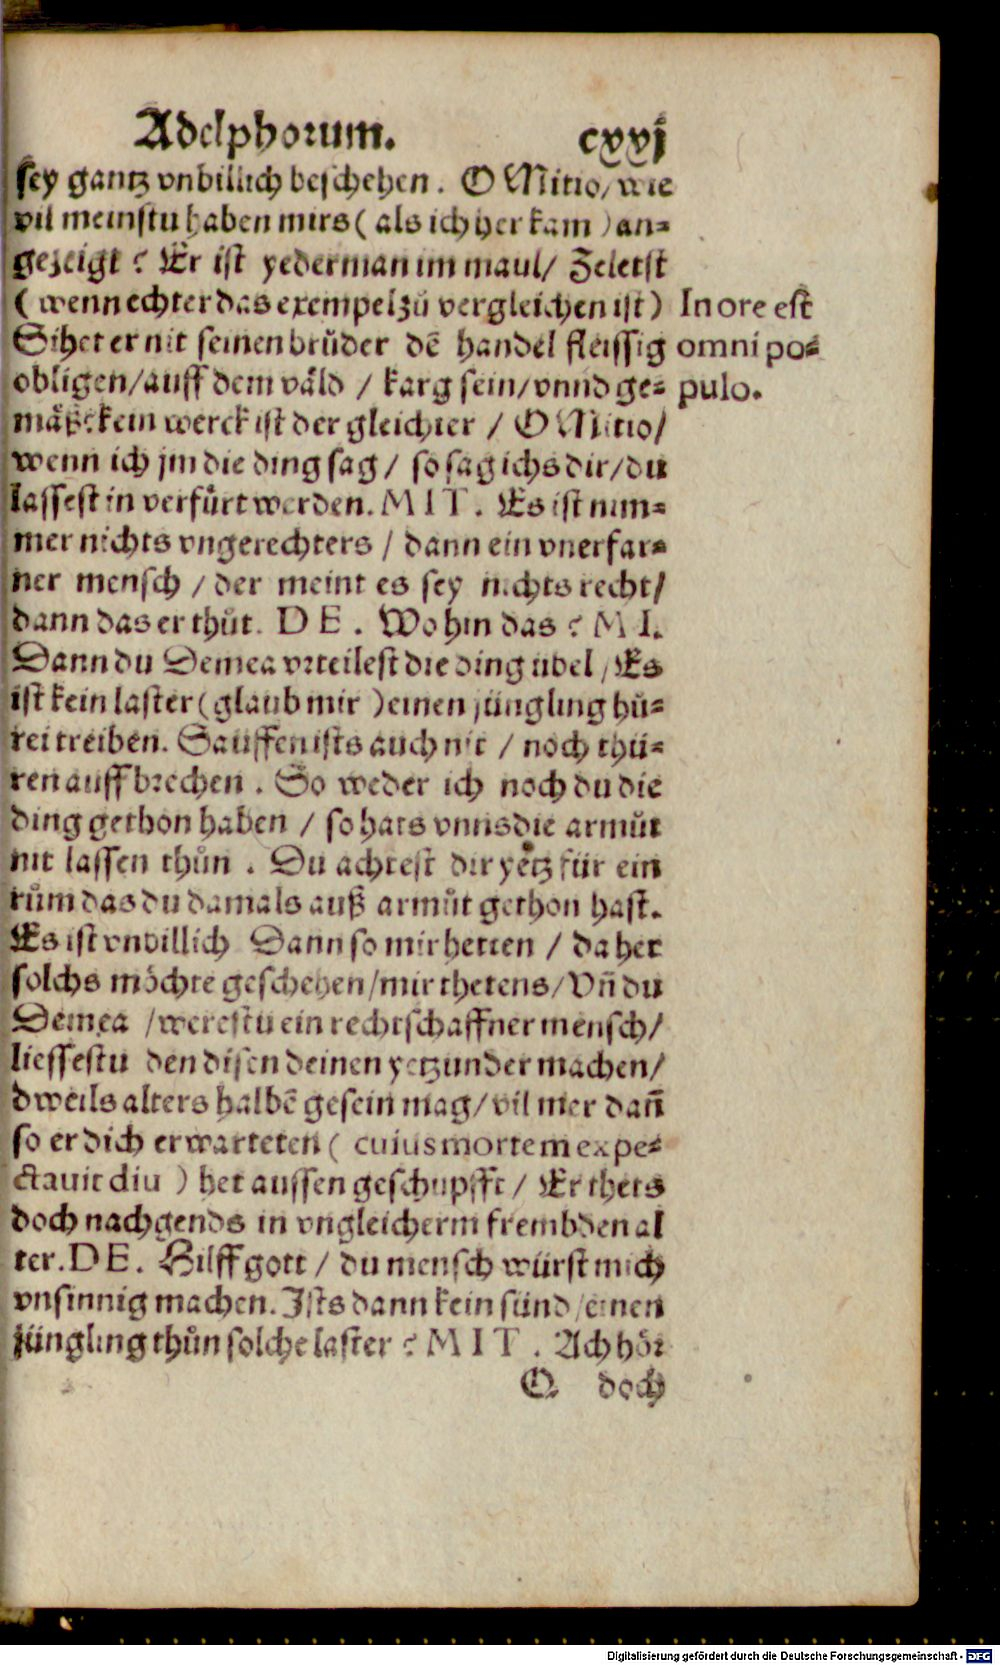 Adelphorum. cxxj
sey gantz vnbillich beschehen. O Mitio/ wie
vil meinstu haben mirs (als ich her kam) an⸗
gezeigt? Er ist yederman im maul/ Zeletst
(wenn echter das exempel zů vergleichen ist) In ore est
Sihet er nit seinen brůder dē handel fleissig omni po⸗
obligen/auff dem väld / karg sein/vnnd ge⸗ pulo.
mäß? kein werck ist der gleichter / O Mitio/
wenn ich jm die ding sag / so sag ichs dir/du
lassest in verfürt werden. MIT. Es ist nim⸗
mer nichts vngerechters / dann ein vnerfar⸗
ner mensch / der meint es sey nichts recht/
dann das er thůt. DE. Wo hin das? MI.
Dann du Demea vrteilest die ding übel / Es
ist kein laster (glaub mir) einen jüngling hů⸗
rei treiben. Sauffen ists auch nit / noch thü⸗
ren auff brechen. So weder ich noch du die
ding gethon haben / so hats vnns die armůt
nit lassen thůn. Du achtest dir yetz für ein
rům das du damals auß armůt gethon hast.
Es ist vnbillich Dann so mir hetten / da her
solchs möchte geschehen/mir thetens/ Vn̄ du
Demea /werestu ein rechtschaffner mensch/
liessestu den disen deinen yetzunder machen/
dweils alters halbē gesein mag/ vil mer dañ
so er dich erwarteten (cuius mortem expe⸗
ctauit diu) het aussen geschupfft / Er thets
doch nachgends in vngleicherm frembden al
ter. DE. Hilff gott / du mensch würst mich
vnsinnig machen. Ists dann kein sünd /einen
jüngling thůn solche laster? MIT. Ach hör
Q doch
Digitalisierung gefördert durch die Deutsche Forschungsgemeinschaft - DFG